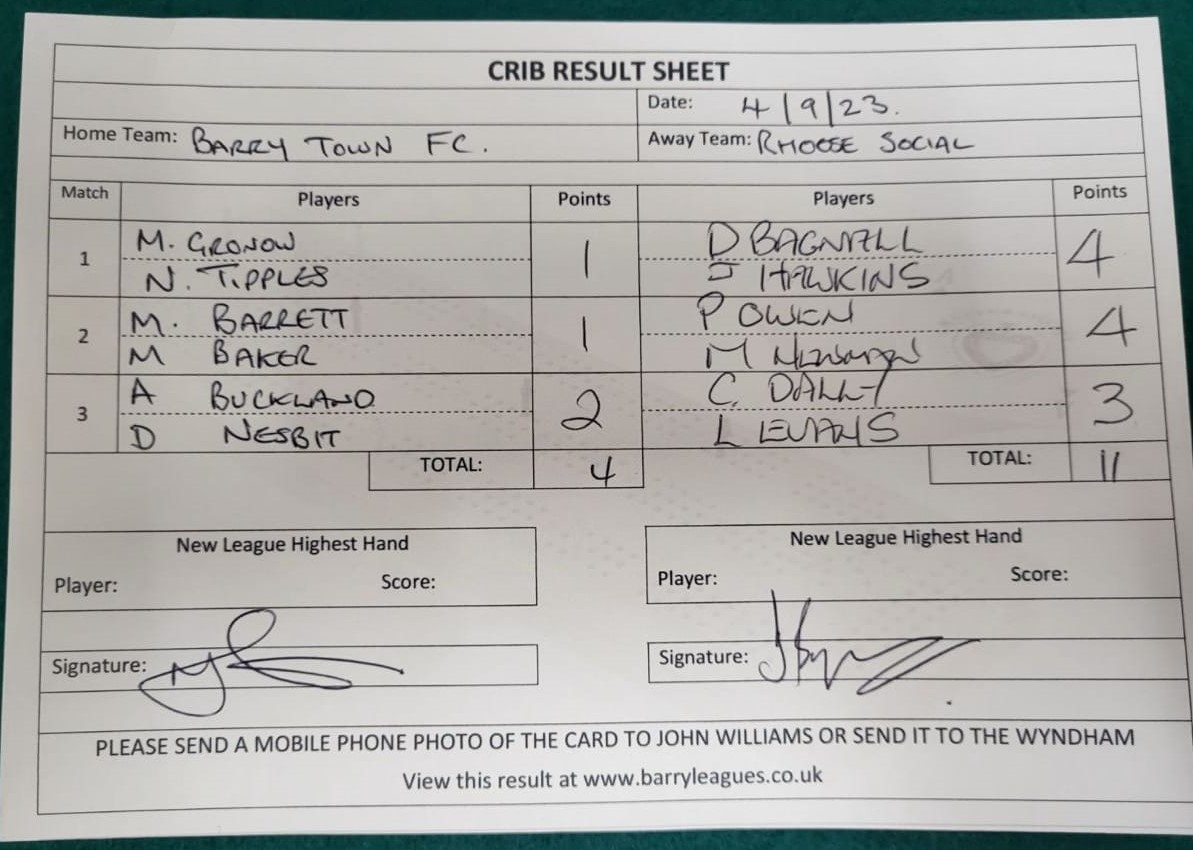 CRIB RESULT SHEET
Date: 4/9/23.
Home Team: BARRY TOWN FC. Away Team: RHOOSE SOCIAL
Match Players Points Players Points
M. GRONOW D BAGNALL
1 1 4
N. TIPPLES J HAWKINS
M. BARRETT P OWEN
2 1 4
M BAKER M
A BUCKLAND C. DALLY
3 2 3
D NESBIT L EVANS
TOTAL: 4 TOTAL: 11
New League Highest Hand New League Highest Hand
Player: Score: Player: Score:
Signature: Signature:
PLEASE SEND A MOBILE PHONE PHOTO OF THE CARD TO JOHN WILLIAMS OR SEND IT TO THE WYNDHAM
View this result at www.barryleagues.co.uk